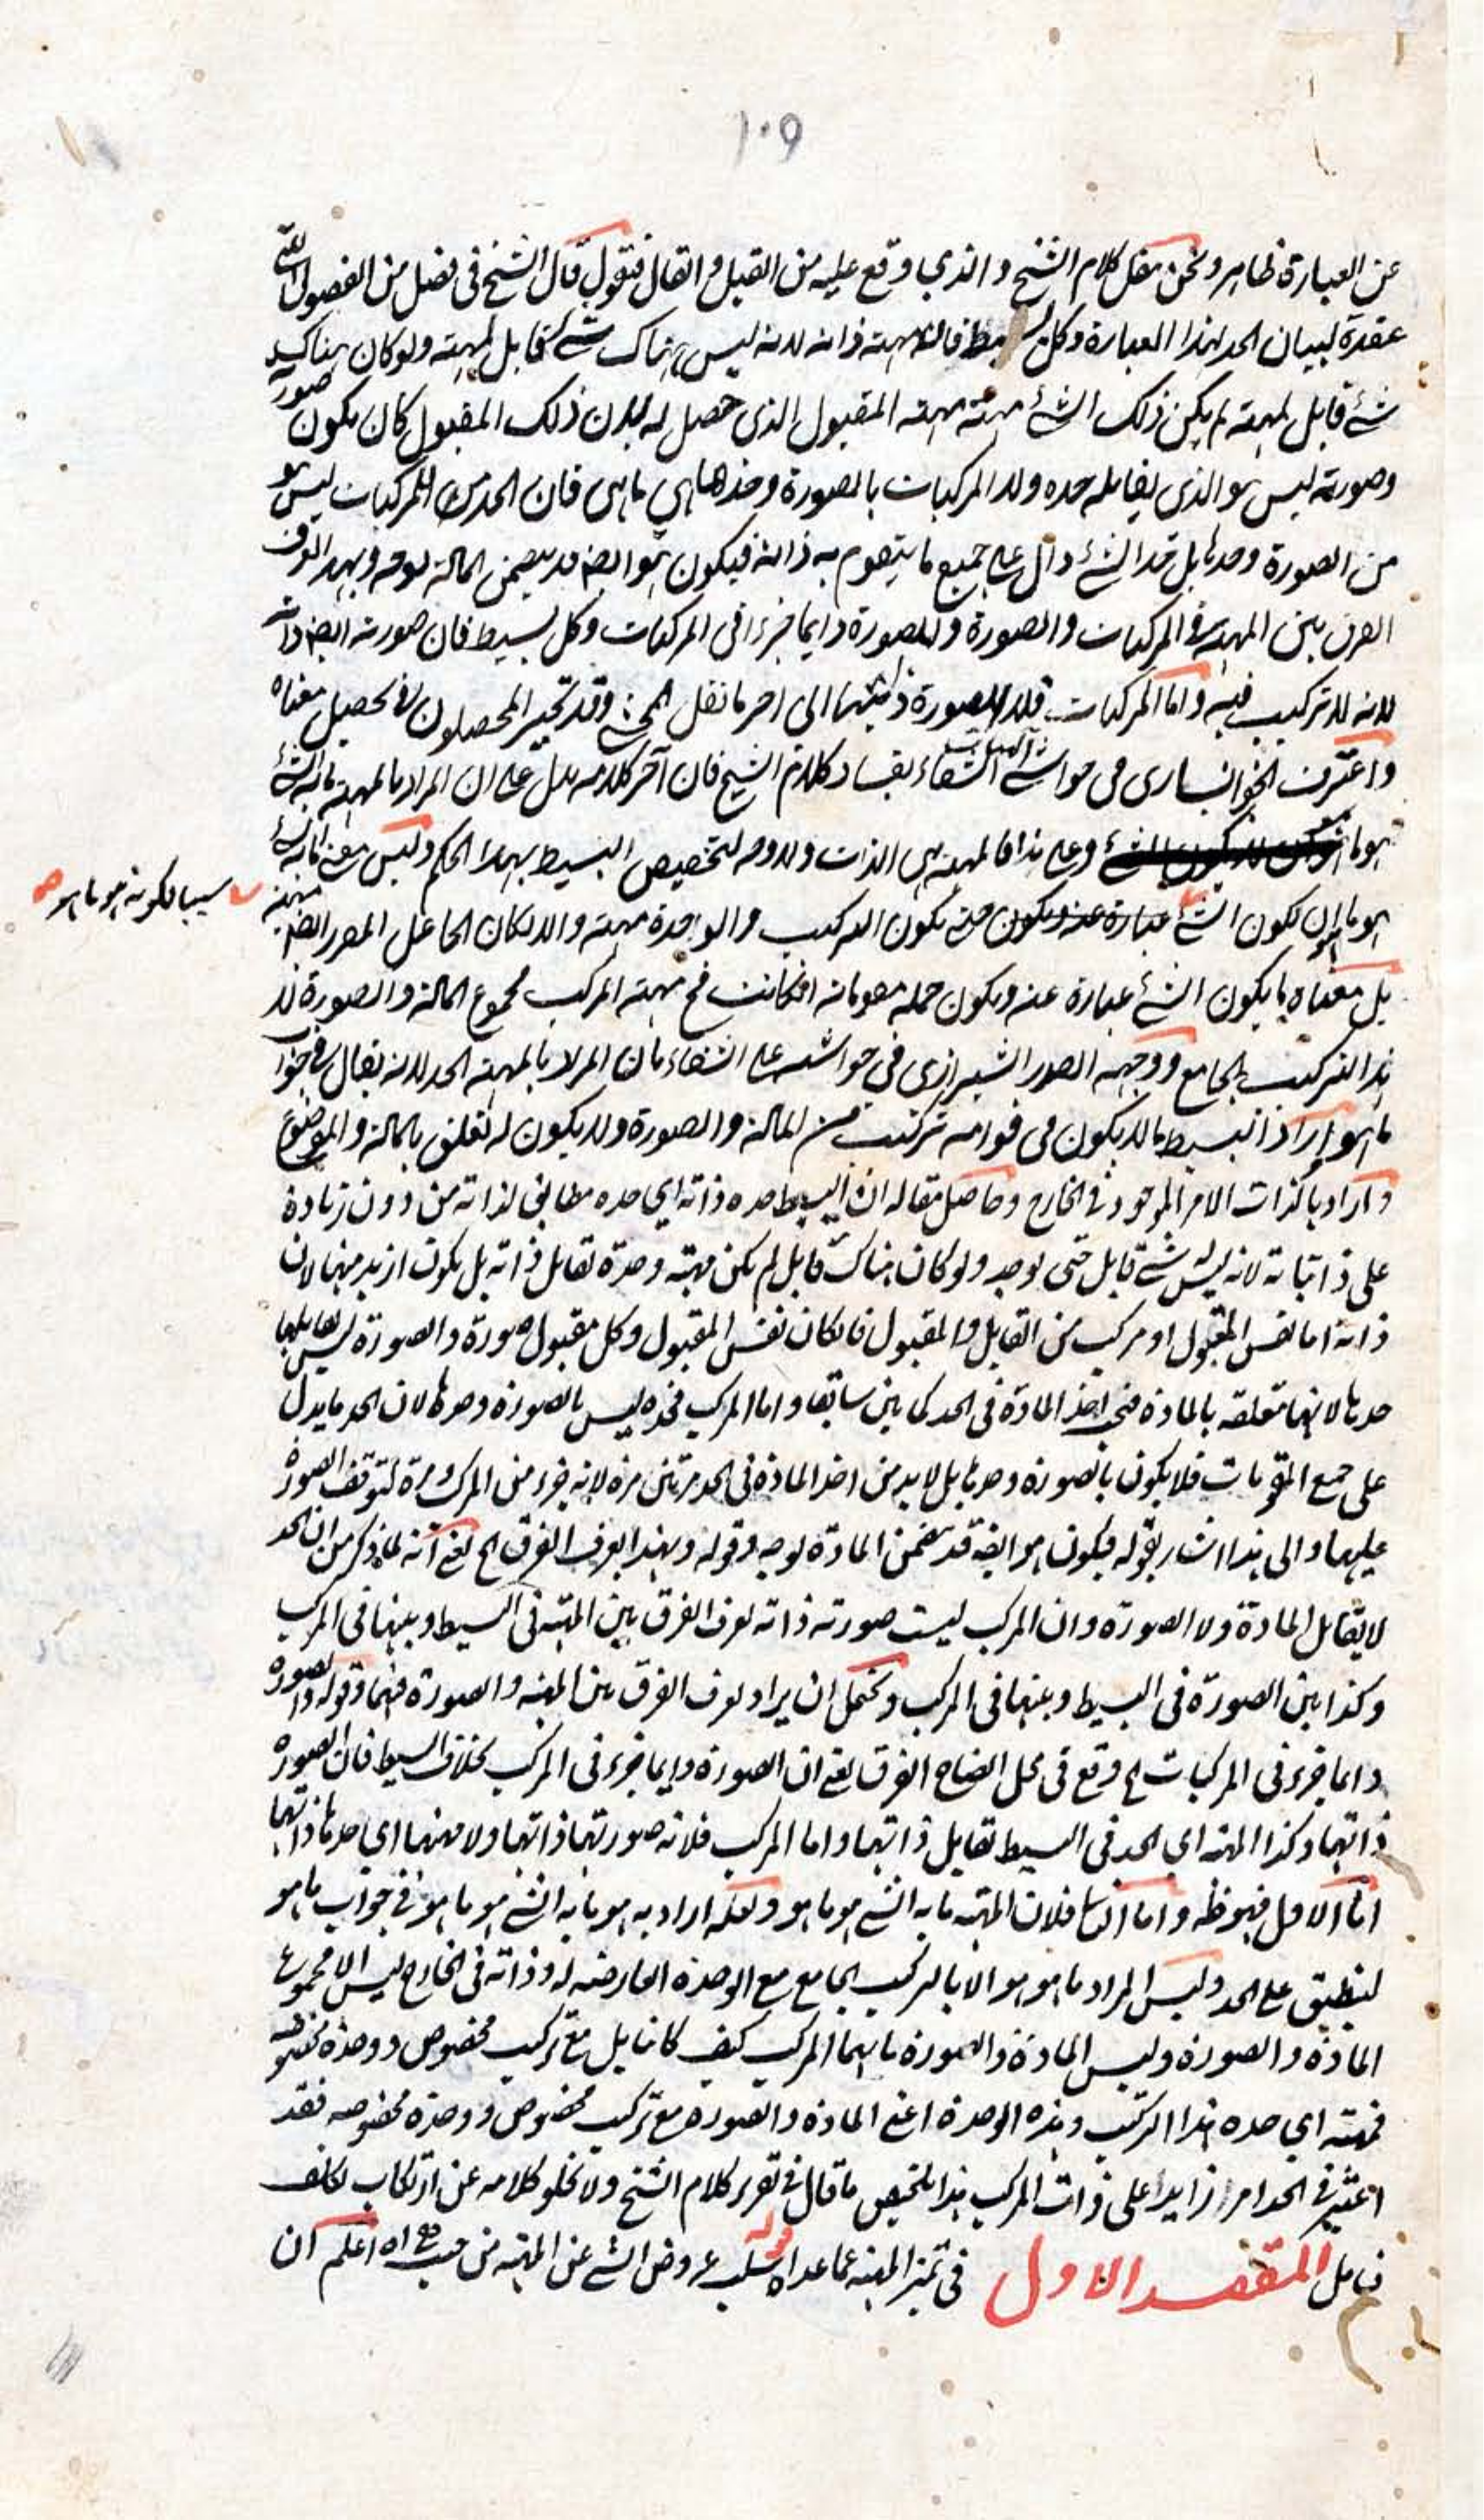 ١٠٩
عن العبارة ظاهر ونحن نقل كلام الشيخ والذي اوقع عليه من القيل والقال فنقول قال الشيخ فى فصل من الفصول التى
عقدة لبيان الحد لهذا العبارة وكل بسيط فان مهيته ذاته لانه ليس هناك شئ قابل لمهيته ولو كان هناك
شئ قابل لمهيته لم يكن ذلك الشئ مهيته مهية المقبول الذى حصل له لان ذلك المقبول كان يكون صورته
وصورته ليس هو الذى يقابله حده ولا المركبات بالصورة وحدها هى ما هى فان الحد للمركبات ليس هو
من الصورة وحدها بل حد الشئ دال على جميع ما يتقوم به ذاته فيكون هو ايضا قد يتضمن المادة بوجه وبهذا يعرف
الفرق بين المهية فى المركبات والصورة والصورة دايما جزء فى المركبات وكل بسيط فان صورته ايضا ذاته
لانه لا تركيب فيه واما المركبات فلا الصورة ذاتها الى اخر ما نقل المحشى وقد تحير المحصلون فى تحصيل معناه
واعترف الخوانسارى فى حواشى الهيات الشفاء بفساد كلام الشيخ فان آخر كلامه يدل على ان المراد بالمهية ما به الشئ
هو ما هو وعلى هذا فالمهية هى الذات ولا وجه لتخصيص البسيط بهذا الحكم وليس معنى ما به الشئ
هو ما هو ان لكون الشئ حتى يكون التركيب والوحدة مهية والا لكان الجاعل المصور ايضا مهية
سببا لكونه هو ما هو صح
بل معناه ما يكون الشئ عبارة عنه ويكون جملة مقوماته اذ كانت فح مهية المركب مجموع المادة والصورة لا
هذا التركيب الجامع ووجهه الصدر الشيرازى فى حواشيه على الشفاء بان المراد بالمهية الحد لانه يقال فى جواب
ما هو واراد بالبسيط ما لا يكون فى قوامه تركيب من المادة والصورة ولا يكون له تعلق بالمادة والموضوع
واراد بالذات الامر الموجود فى الخارج وحاصل مقاله ان البسيط حده ذاته اى حده مطابق لذاته من دون زيادة
على ذاتياته لانه ليس شئ قابل حتى يوجد ولو كان هناك قابل لم يكن مهيته وحده تقابل ذاته بل يكون ازيد منها لان
ذاته اما نفس المقبول او مركب من القابل والمقبول فان كان نفس المقبول وكل مقبول صورة والصورة ليس يقابلها
حدها لانها متعلقة بالمادة فيؤخذ المادة فى الحد كما بين سابقا واما المركب فحده ليس بالصورة وحدها لان الحد ما يدل
على جميع المقومات فلا يكون بالصورة وحدها بل لابد من اخذ المادة فى الحد مرتين مرة لانه جزء من المركب ومرة لتوقف الصورة
عليها والى هذا اشار بقوله فيكون هو ايضا قد تضمن المادة بوجه وقوله وبهذا يعرف الفرق الخ يعنى انه لما ذكر من ان الحد
لا يقابل المادة ولا الصورة وان المركب ليست صورته ذاته يعرف الفرق بين المهية فى البسيط وبينها فى المركب
وكذا بين الصورة فى البسيط وبينها فى المركب ويحتمل ان يراد يعرف الفرق بين المهية والصورة فيهما وقوله والصورة
دايما جزء فى المركبات الخ وقع فى محل ايضاح الفرق يعنى ان الصورة دايما جزء فى المركب بخلاف البسيط فان الصورة
ذاتها وكذا المهية اى الحد فى البسيط تقابل ذاتها واما المركب فلانه صورتها ذاتها ولا مهيتها اى حدها ذاتها
اما الاول فهو ظ واما الثانى فلان المهية ما به الشئ هو ما هو ولعله اراد به هو ما به الشئ هو ما هو فى جواب ما هو
لينطبق على الحد وليس المراد ما هو هو الا بالتركيب الجامع مع الوحدة العارضة له وذاته فى الخارج ليس الا مجموع
المادة والصورة وليس المادة والصورة ما بهما المركب كيف كانا بل مع تركيب مخصوص ووحدة مخصوصة
فمهيته اى حده هذا التركيب وهذه الوحدة اعنى المادة والصورة مع تركيب مخصوص ووحدة مخصوصة فقد
اعتبر فى الحد امرا زايدا على ذات المركب هذا تلخيص ما قال فى تقرير كلام الشيخ ولا يخلو كلامه عن ارتكاب تكلف
فتامل المقصد الاول فى تميز المهية عما عداه قوله سلب عروض الشئ عن المهية من حيث هى اه اعلم ان